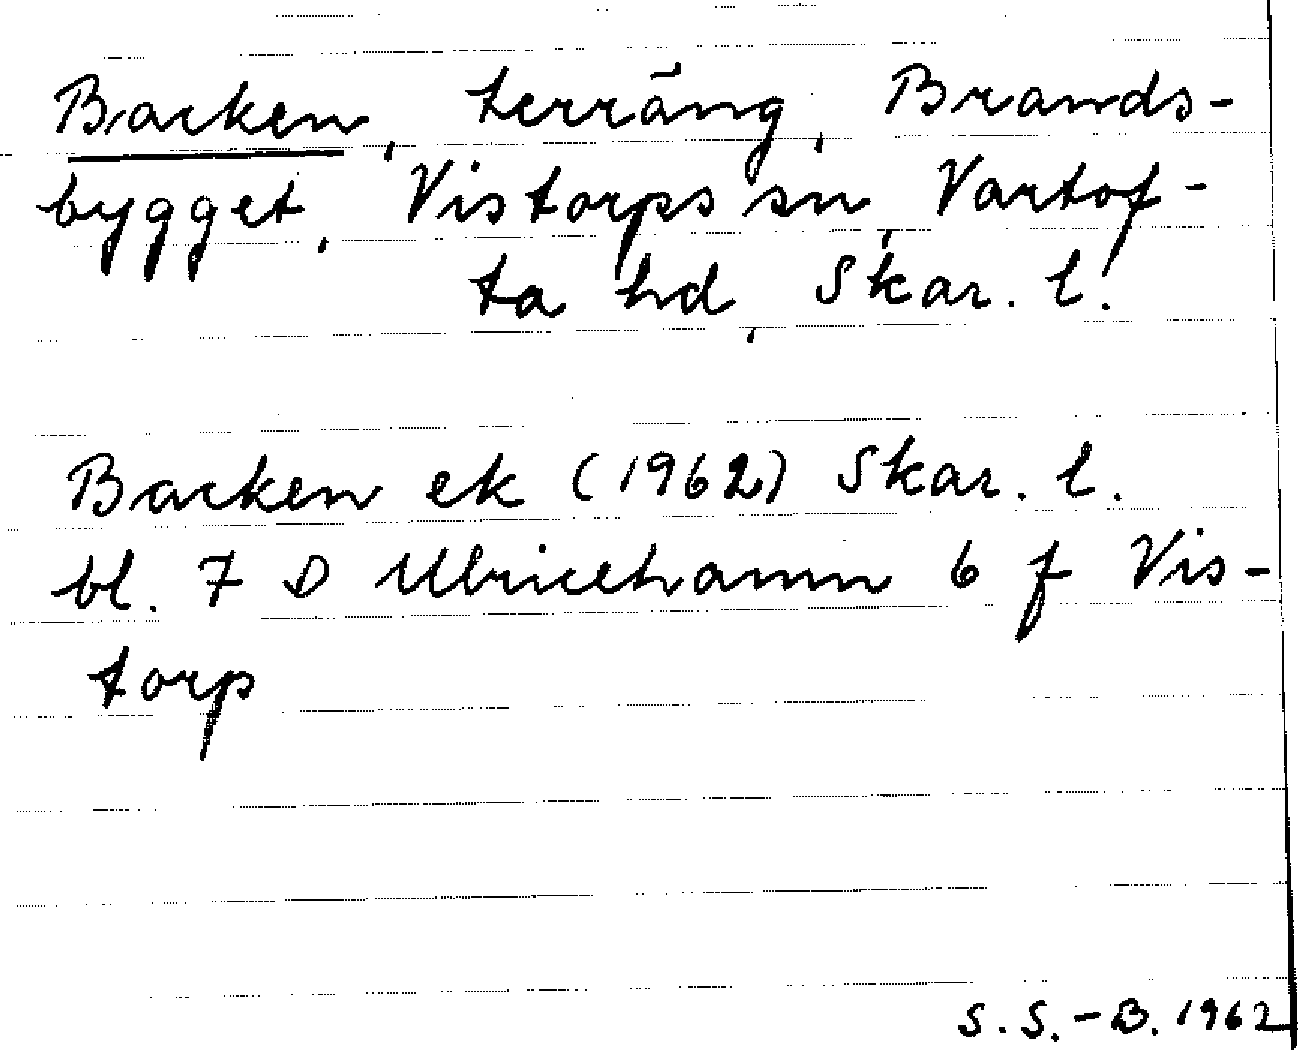 Backen, terräng, Brands-
bygget, Vistorps sn, Vartof-
ta hd, Skar. l.
Backen ek (1962) Skar. l.
bl. 7 D Ulricehamn 6 f Vis-
torp
S.S.-B. 1962